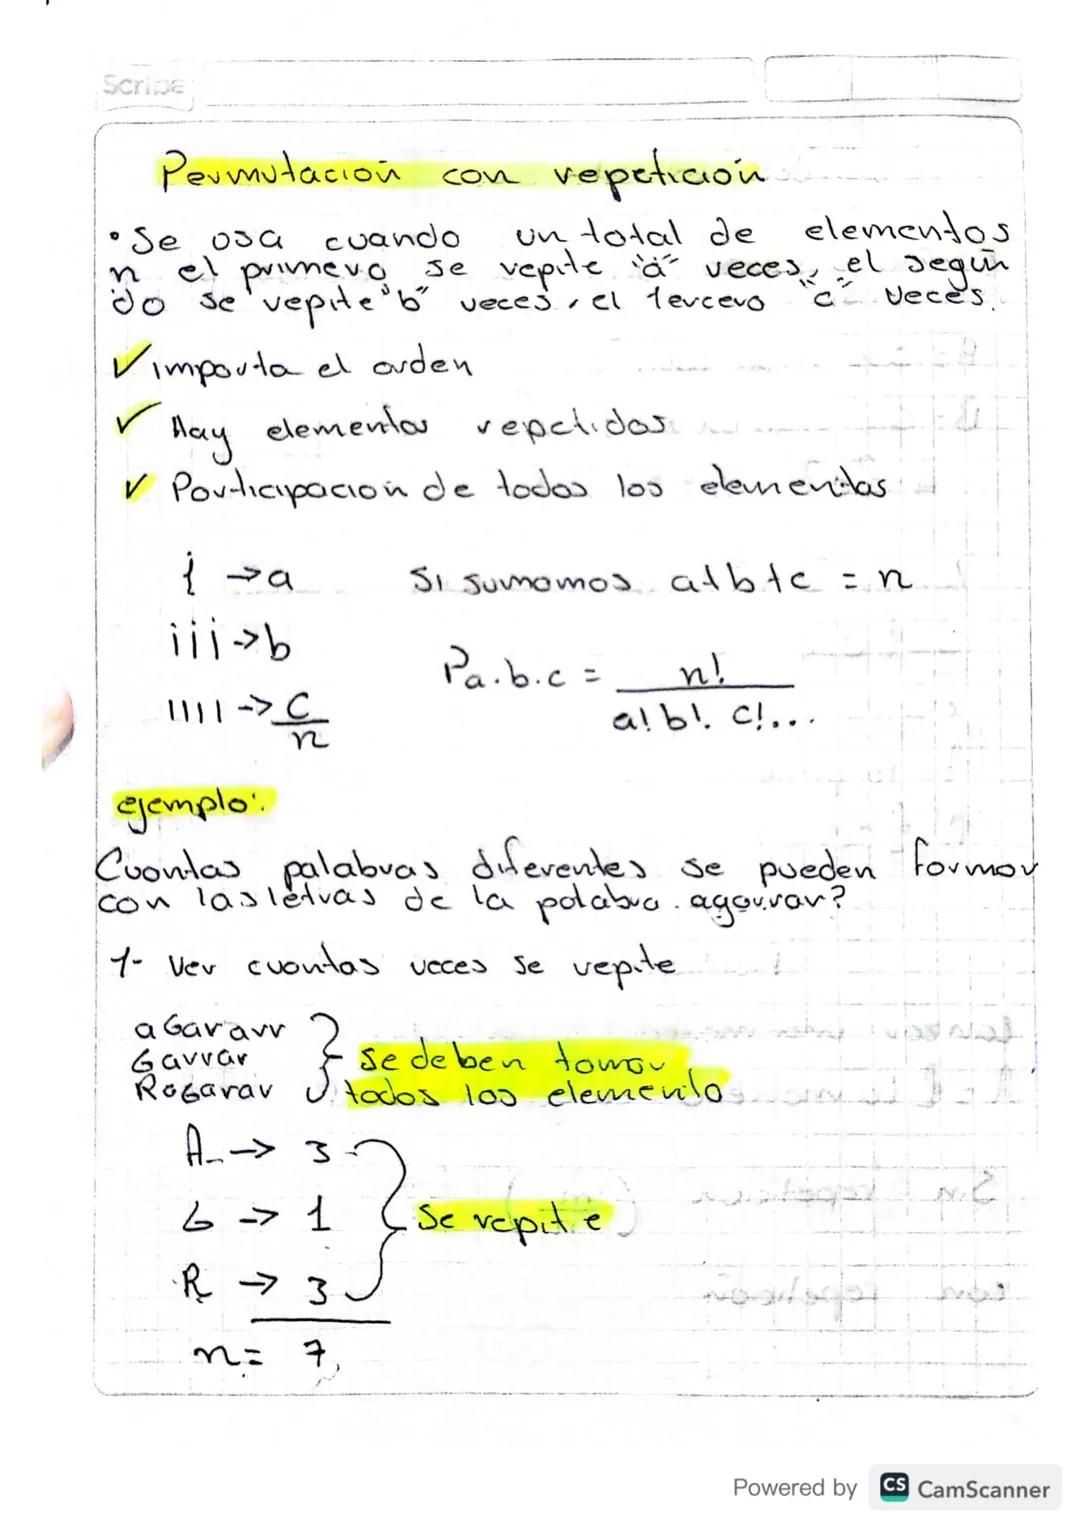 Scribe
Permutación con repetición
• Se usa cuando un total de elementos
n el primero se repite "a" veces, el segun
do se repite "b" veces, el tercero "c" veces.
✓ importa el orden
✓ Hay elementos repetidos
✓ Participación de todos los elementos
i → a Si sumamos a+b+c = n
iii → b
Pa.b.c = n!
a! b!. c!...
1111 → c
n
ejemplo:
Cuantas palabras diferentes se pueden formar
con las letras de la palabra agarrar?
1- Ver cuantas veces se repite
aGararr
Garrar
RaGarar
se deben tomar
todos los elemento
A → 3
G → 1 Se repite
R → 3
n = 7
Powered by CS CamScanner